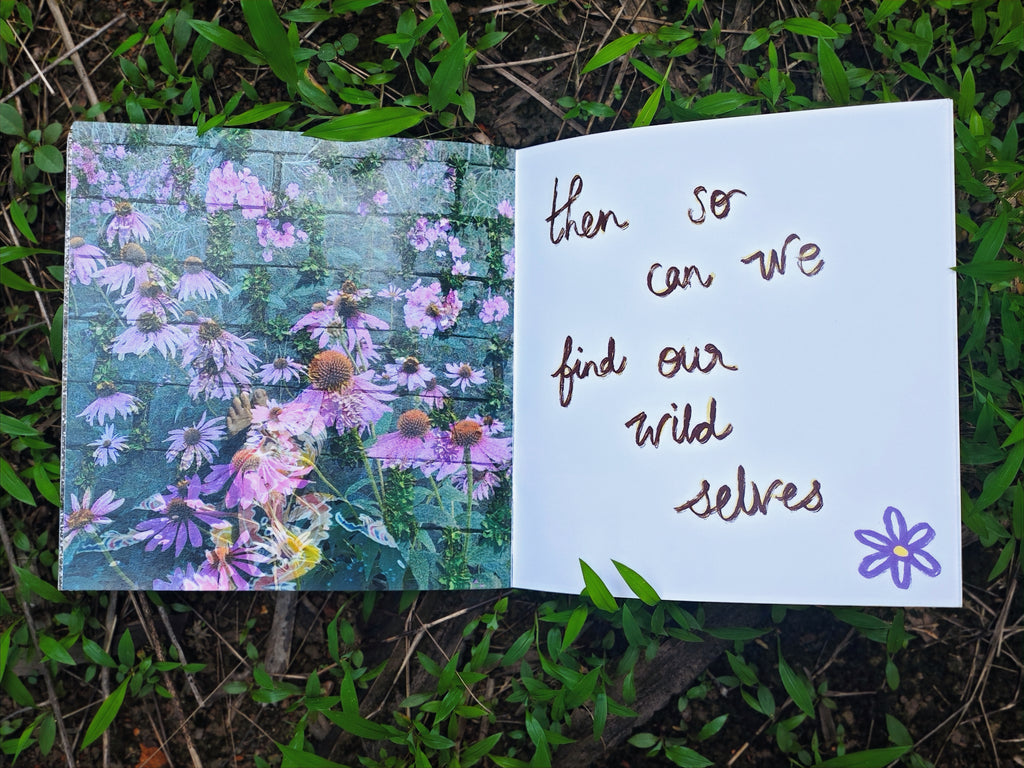 then so
can we
find our
wild
selves